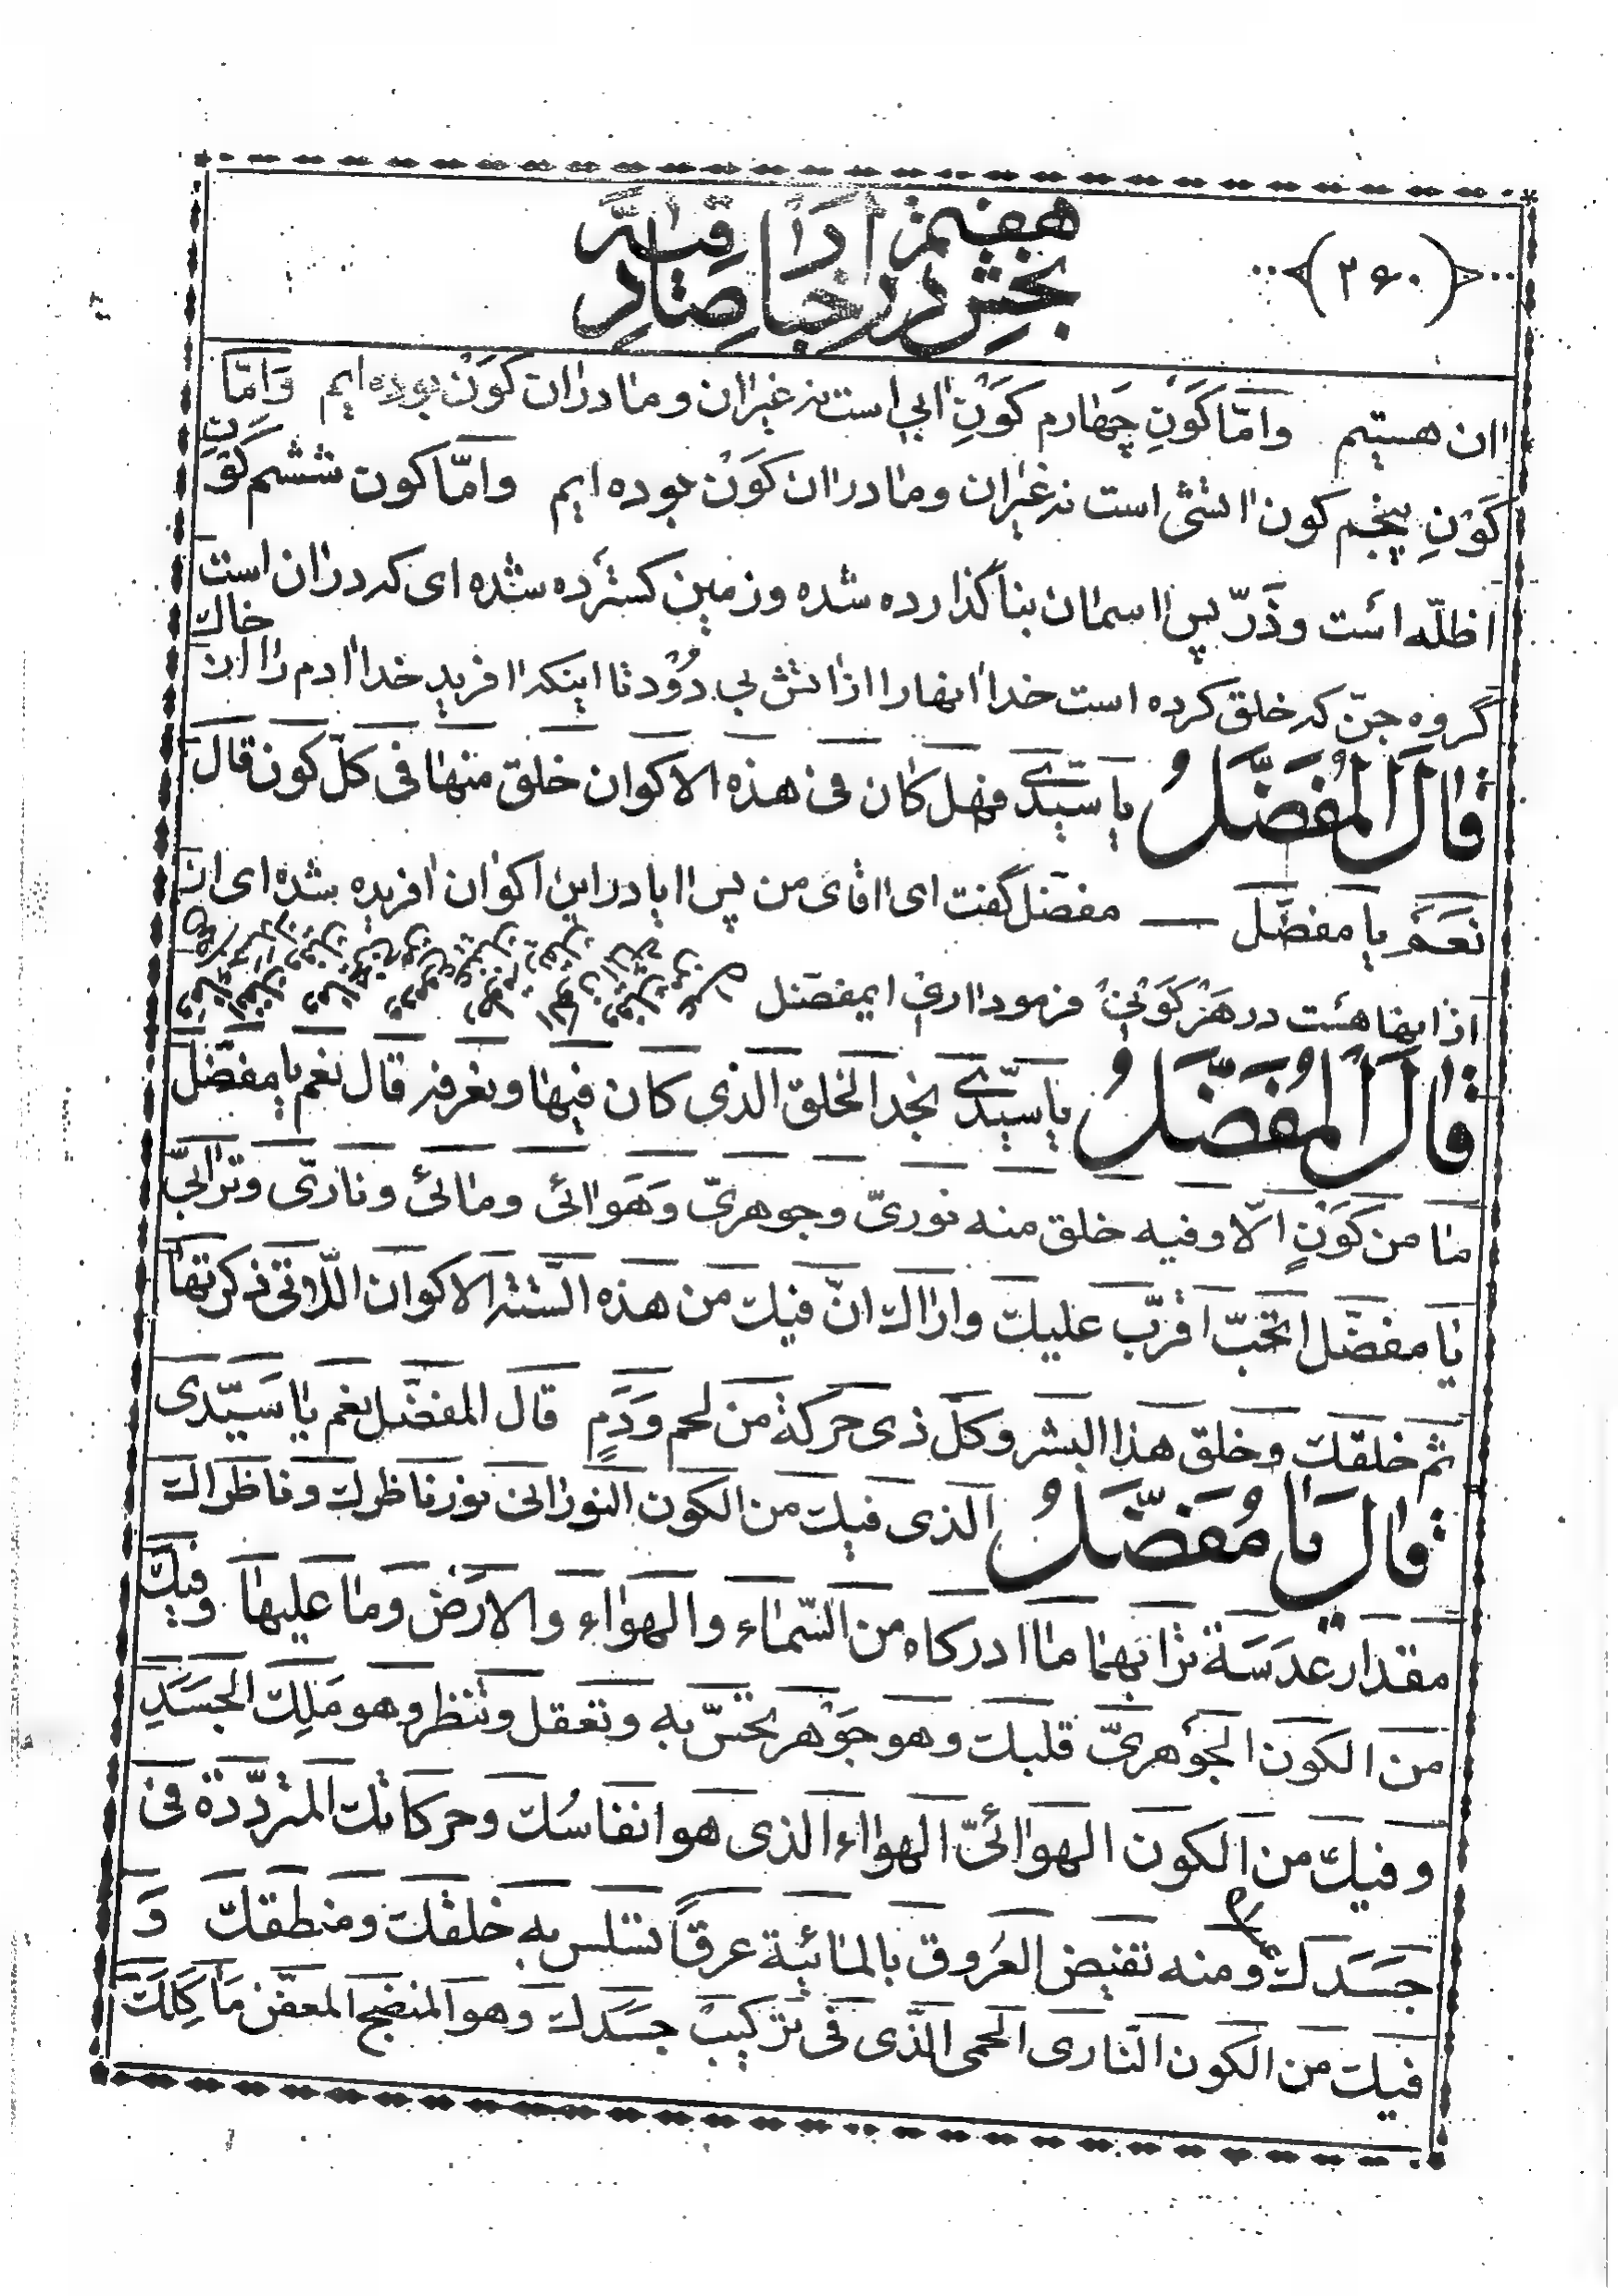 (۲۶۰)
بخش هفتم در اخبار صادقیه
ان هستیم وامّا کَونِ چَهارم کَونِ ابی است نه غیران وما دران کَون بوده ایم وَامّا
کَونِ پنجم کون اتشی است نه غیران وما دران کَون بوده ایم وامّا کون ششم کَونِ
اظلّه است وذَرّ پس اسمان بنا گذارده شده وزمین کسترده شده ای که دران است
گروه جنّ که خلق کرده است خدا انها را از اتش بی دوُد تا اینکه افرید خدا ادم را از خاک
قالَ المُفَضَّلُ یا سیّدی فهل کان فی هذه الاکوان خلق منها فی کلّ کون قال
نَعَم یا مفضّل — مفضّل گفت ای اقای من پس ایا در این اکوان افریده شده ای از
از اینها هست در هَر کَونی فرمود اری ایمفضّل
قالَ المُفَضَّلُ یا سیّدی نجد الخلق الذی کان فیها ونعرفه قال نعم یا مفضّل
ما من کَونٍ الّا وفیه خلق منه نوریّ وجوهریّ وَهَوائی ومائی وناریّ وترابیّ
یا مفضّل اتحبّ اقرّب علیک واراک انّ فیک من هذه الستّة الاکوان اللّاتی ذکرتها
ثم خلقک وخلق هذا البشر وکلّ ذی حرکة من لحم ودَمٍ قال المفضّل نعم یا سَیّدی
قال یا مُفَضَّلُ الذی فیک من الکون النورانی نور ناظرک وناظراک
مقدار عَدَسَة ترا بهما ما ادرکاه من السّماء والهواء والارض وما علیها وفیک
من الکون الجَوهریّ قلبک وهو جَوهر تحسّ به وتعقل وتنظر وهو مَلِک الجَسَدِ
وفیک من الکون الهوائیّ الهواء الذی هو انفاسُک وحرکاتک المتردّدة فی
جسَدک ومنه تفیض العُروق بالمائیة عرقاً تسلس به خلقک ومنطقک وَ
فیک من الکون النّاری الحمی الذّی فی ترکیب جسَدک وهو المنضج المعفّن مَا کِلَکَ